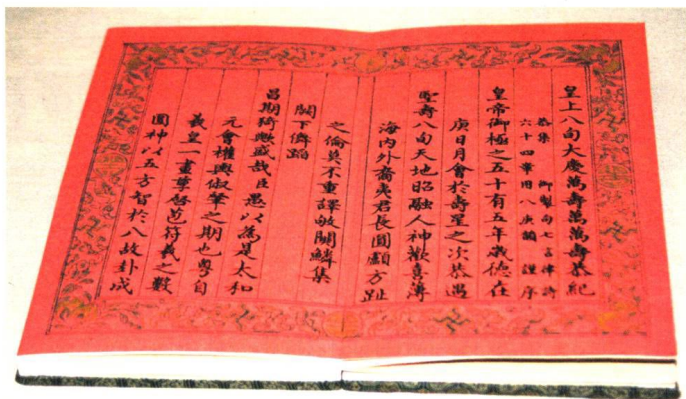 皇上八旬大慶萬壽萬萬壽恭紀
恭集　御製句七言律詩
六十四章用八庚韻　謹序
皇帝御極之五十有五年歲德在
庚日月會於壽星之次恭遇
聖壽八旬天地昭融人神歡喜薄
海內外裔夷君長圓顱方趾
之倫莫不重譯敂關鱗集
闕下儛蹈
昌期猗歟盛哉臣愚以為是太和
元會權輿俶肇之期也粵自
羲皇一畫肇啓苞符蓍之數
圓神以五方智於八故卦成